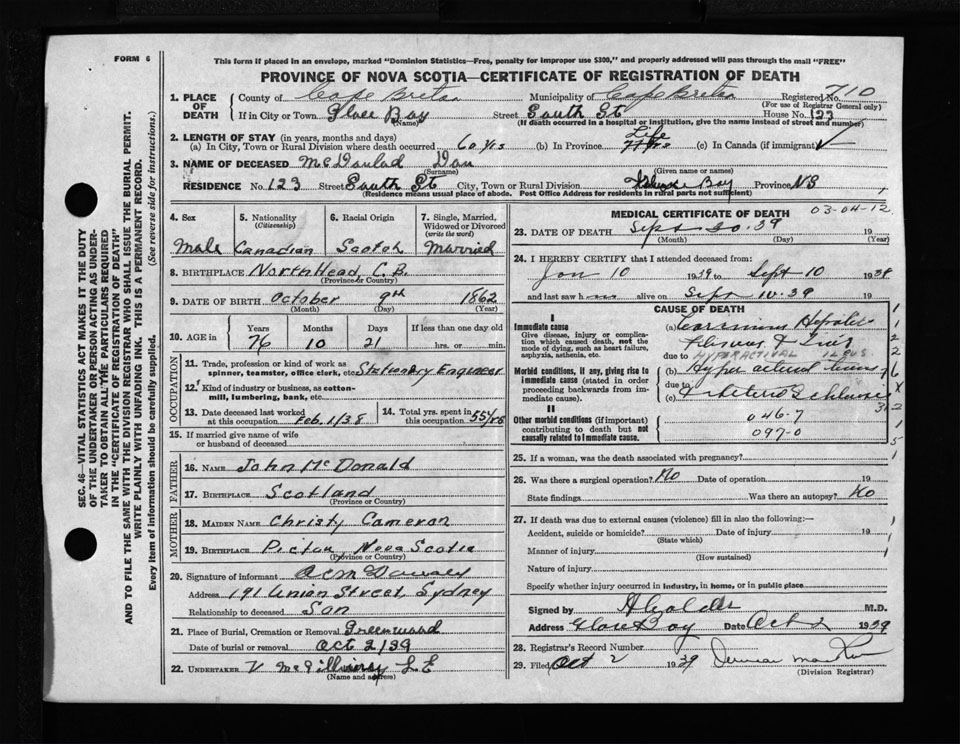 FORM 6
This form if placed in an envelope, marked "Dominion Statistics—Free, penalty for improper use $300," and properly addressed will pass through the mail "FREE"
PROVINCE OF NOVA SCOTIA—CERTIFICATE OF REGISTRATION OF DEATH
1. PLACE OF DEATH
County of Cape Breton Municipality of Cape Breton Registered No. 710
(For use of Registrar General only)
If in City or Town Glace Bay Street South St House No. 123
(Name) (If death occurred in a hospital or institution, give the name instead of street and number)
2. LENGTH OF STAY (in years, months and days)
(a) In City, Town or Rural Division where death occurred 60 yrs (b) In Province Life (c) In Canada (if immigrant)
3. NAME OF DECEASED McDonald Dan
(Surname) (Given name or names)
RESIDENCE No. 123 Street South St City, Town or Rural Division Glace Bay Province NS
(Residence means usual place of abode. Post Office Address for residents in rural parts not sufficient)
4. Sex Male
5. Nationality (Citizenship) Canadian
6. Racial Origin Scotch
7. Single, Married, Widowed or Divorced (write the word) Married
8. BIRTHPLACE North Head, C.B.
(Province or Country)
9. DATE OF BIRTH October 9th 1862
(Month) (Day) (Year)
10. AGE in Years Months Days If less than one day old
76 10 21 hrs. or min.
OCCUPATION
11. Trade, profession or kind of work as spinner, teamster, office clerk, etc. Stationary Engineer
12. Kind of industry or business, as cotton-mill, lumbering, bank, etc.
13. Date deceased last worked at this occupation Feb. 1/38
14. Total yrs. spent in this occupation 55 yrs
15. If married give name of wife or husband of deceased
FATHER
16. NAME John McDonald
17. BIRTHPLACE Scotland
(Province or Country)
MOTHER
18. MAIDEN NAME Christy Cameron
19. BIRTHPLACE Pictou Nova Scotia
(Province or Country)
20. Signature of informant
Address 191 Union Street, Sydney
Relationship to deceased Son
21. Place of Burial, Cremation or Removal Greenwood
Date of burial or removal Oct 2/39
22. UNDERTAKER V McGillivray
(Name and address)
MEDICAL CERTIFICATE OF DEATH 03-04-12
23. DATE OF DEATH Sept 30. 39 19
(Month) (Day) (Year)
24. I HEREBY CERTIFY that I attended deceased from:
Jan 10 1939 to Sept 10 1938
and last saw h alive on Sept 10. 39 19
CAUSE OF DEATH
I
Immediate cause
Give disease, injury or complication which caused death, not the mode of dying, such as heart failure, asphyxia, asthenia, etc.
(a)
due to
Morbid conditions, if any, giving rise to immediate cause (stated in order proceeding backwards from immediate cause).
(b)
due to
(c)
II
Other morbid conditions (if important) contributing to death but not causally related to immediate cause.
046-7
097-0
25. If a woman, was the death associated with pregnancy?
26. Was there a surgical operation? No Date of operation 19
State findings Was there an autopsy? No
27. If death was due to external causes (violence) fill in also the following:—
Accident, suicide or homicide? Date of injury 19
(State which)
Manner of injury
(How sustained)
Nature of injury
Specify whether injury occurred in industry, in home, or in public place
Signed by M.D.
Address Glace Bay Date Oct 2 1939
28. Registrar's Record Number
29. Filed Oct 2 1939
(Division Registrar)
SEC. 46—VITAL STATISTICS ACT MAKES IT THE DUTY
OF THE UNDERTAKER OR PERSON ACTING AS UNDERTAKER TO OBTAIN ALL THE PARTICULARS REQUIRED
IN THE "CERTIFICATE OF REGISTRATION OF DEATH"
AND TO FILE THE SAME WITH THE DIVISION REGISTRAR WHO SHALL ISSUE THE BURIAL PERMIT.
WRITE PLAINLY WITH UNFADING INK. THIS IS A PERMANENT RECORD.
Every item of information should be carefully supplied. (See reverse side for instructions.)